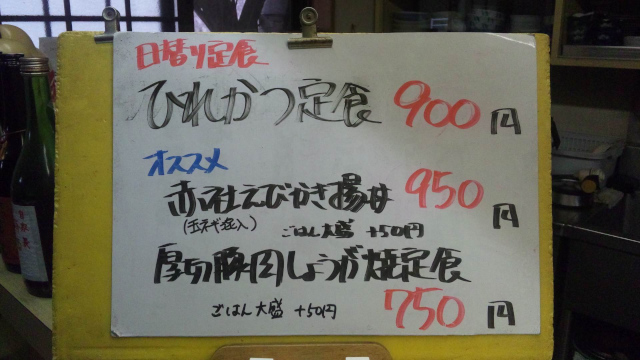 日替り定食
ひれかつ定食 900円
オススメ
赤社えびかき揚丼 950円
(玉ネギ入) ごはん大盛 +50円
厚切豚肉しょうが焼定食
ごはん大盛 +50円 750円